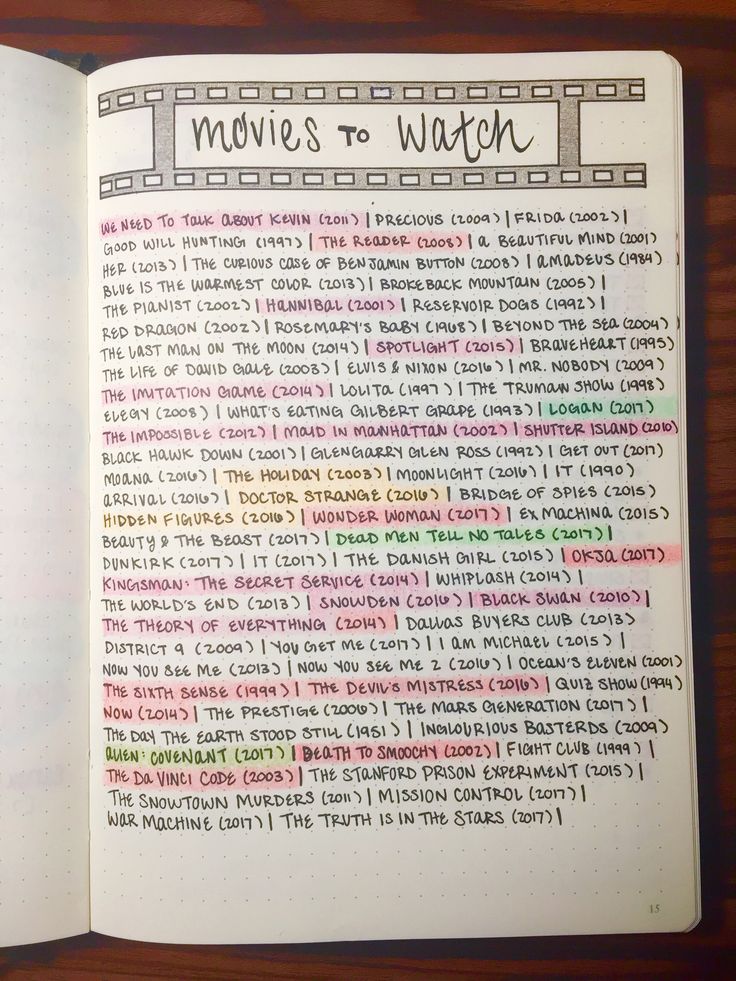 movies TO watch
WE NEED TO TALK ABOUT KEVIN (2011) | PRECIOUS (2009) | FRIDA (2002) |
GOOD WILL HUNTING (1997) | THE READER (2008) | A BEAUTIFUL MIND (2001)
HER (2013) | THE CURIOUS CASE OF BENJAMIN BUTTON (2008) | AMADEUS (1984)
BLUE IS THE WARMEST COLOR (2013) | BROKEBACK MOUNTAIN (2005) |
THE PIANIST (2002) | HANNIBAL (2001) | RESERVOIR DOGS (1992) |
RED DRAGON (2002) | ROSEMARY'S BABY (1968) | BEYOND THE SEA (2004) |
THE LAST MAN ON THE MOON (2014) | SPOTLIGHT (2015) | BRAVEHEART (1995)
THE LIFE OF DAVID GALE (2003) | ELVIS & NIXON (2016) | MR. NOBODY (2009)
THE IMITATION GAME (2014) | LOLITA (1997) | THE TRUMAN SHOW (1998)
ELEGY (2008) | WHAT'S EATING GILBERT GRAPE (1993) | LOGAN (2017)
THE IMPOSSIBLE (2012) | MAID IN MANHATTAN (2002) | SHUTTER ISLAND (2010)
BLACK HAWK DOWN (2001) | GLENGARRY GLEN ROSS (1992) | GET OUT (2017)
MOANA (2016) | THE HOLIDAY (2003) | MOONLIGHT (2016) | IT (1990)
ARRIVAL (2016) | DOCTOR STRANGE (2016) | BRIDGE OF SPIES (2015)
HIDDEN FIGURES (2016) | WONDER WOMAN (2017) | EX MACHINA (2015)
BEAUTY & THE BEAST (2017) | DEAD MEN TELL NO TALES (2017) |
DUNKIRK (2017) | IT (2017) | THE DANISH GIRL (2015) | OKJA (2017)
KINGSMAN: THE SECRET SERVICE (2014) | WHIPLASH (2014) |
THE WORLD'S END (2013) | SNOWDEN (2016) | BLACK SWAN (2010) |
THE THEORY OF EVERYTHING (2014) | DALLAS BUYERS CLUB (2013)
DISTRICT 9 (2009) | YOU GET ME (2017) | I AM MICHAEL (2015) |
NOW YOU SEE ME (2013) | NOW YOU SEE ME 2 (2016) | OCEAN'S ELEVEN (2001)
THE SIXTH SENSE (1999) | THE DEVIL'S MISTRESS (2016) | QUIZ SHOW (1994)
NOW (2014) | THE PRESTIGE (2006) | THE MARS GENERATION (2017) |
THE DAY THE EARTH STOOD STILL (1951) | INGLOURIOUS BASTERDS (2009)
ALIEN: COVENANT (2017) | DEATH TO SMOOCHY (2002) | FIGHT CLUB (1999) |
THE DA VINCI CODE (2003) | THE STANFORD PRISON EXPERIMENT (2015) |
THE SNOWTOWN MURDERS (2011) | MISSION CONTROL (2017) |
WAR MACHINE (2017) | THE TRUTH IS IN THE STARS (2017) |
15